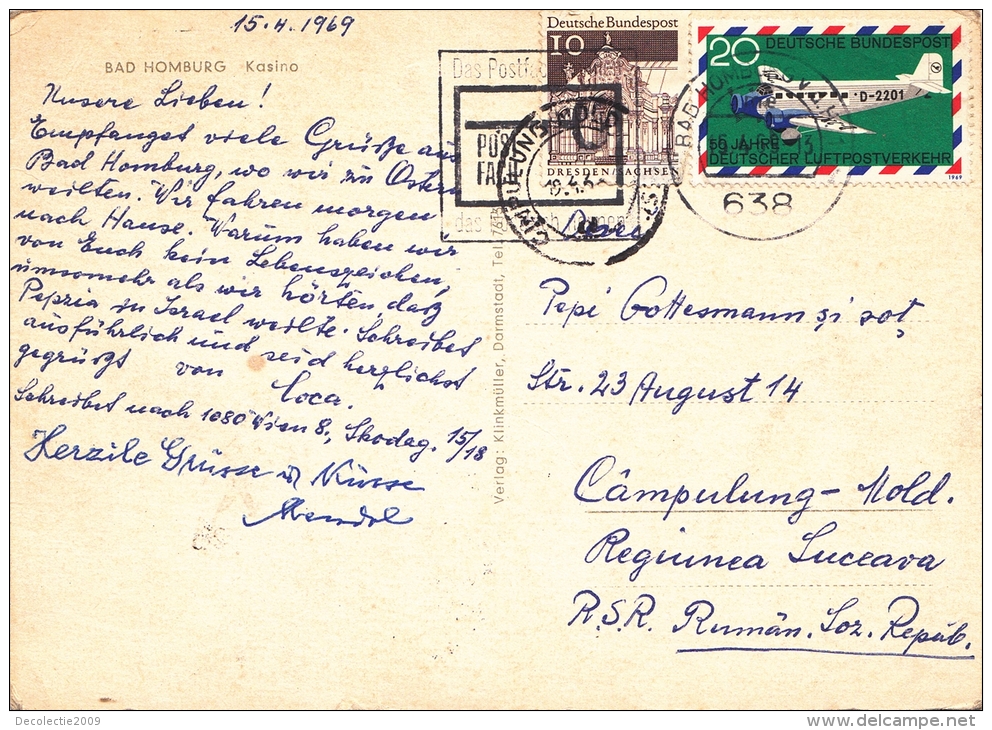 15.4.1969
BAD HOMBURG Kasino
Unsere Lieben!
Empfanget viele Grüße aus
Bad Homburg, wo wir zu Ostern
weilten. Wir fahren morgen
nach Hause. Warum haben wir
von Euch kein Lebenszeichen,
umsomehr als wir hörten, daß
Pepria in Israel weilte. Schreibet
ausführlich und seid herzlichst
gegrüßt von Coca.
Schreibet nach 1080 Wien 8., Skodag. 15/18
Herzile Grüsse u Küsse
Mendel
Verlag: Klinkmüller, Darmstadt, Tel.
Deutsche Bundespost
10
DRESDEN/SACHSEN
20 DEUTSCHE BUNDESPOST
D-2201
50 JAHRE
DEUTSCHER LUFTPOSTVERKEHR
1969
Das Postfach
POST
FACH
BAD HOMBURG
638
CIMPULUNG
Pepi Gottesmann și soț
Str. 23 August 14
Câmpulung-Mold.
Regiunea Suceava
R.S.R. Rumän. Soz. Repub.
Decolectie2009
www.delcampe.net